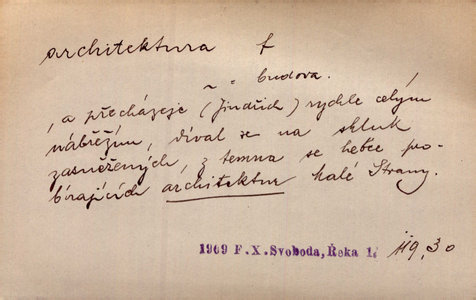 architektura f
~ = budova.
, a přecházeje (Jindřich) rychle celým
nábřežím, díval se na shluk
zasněžených, z temna se lehce pro-
bírajících architektur Malé Strany.
1909 F.X.Svoboda, Řeka 1. 119,30